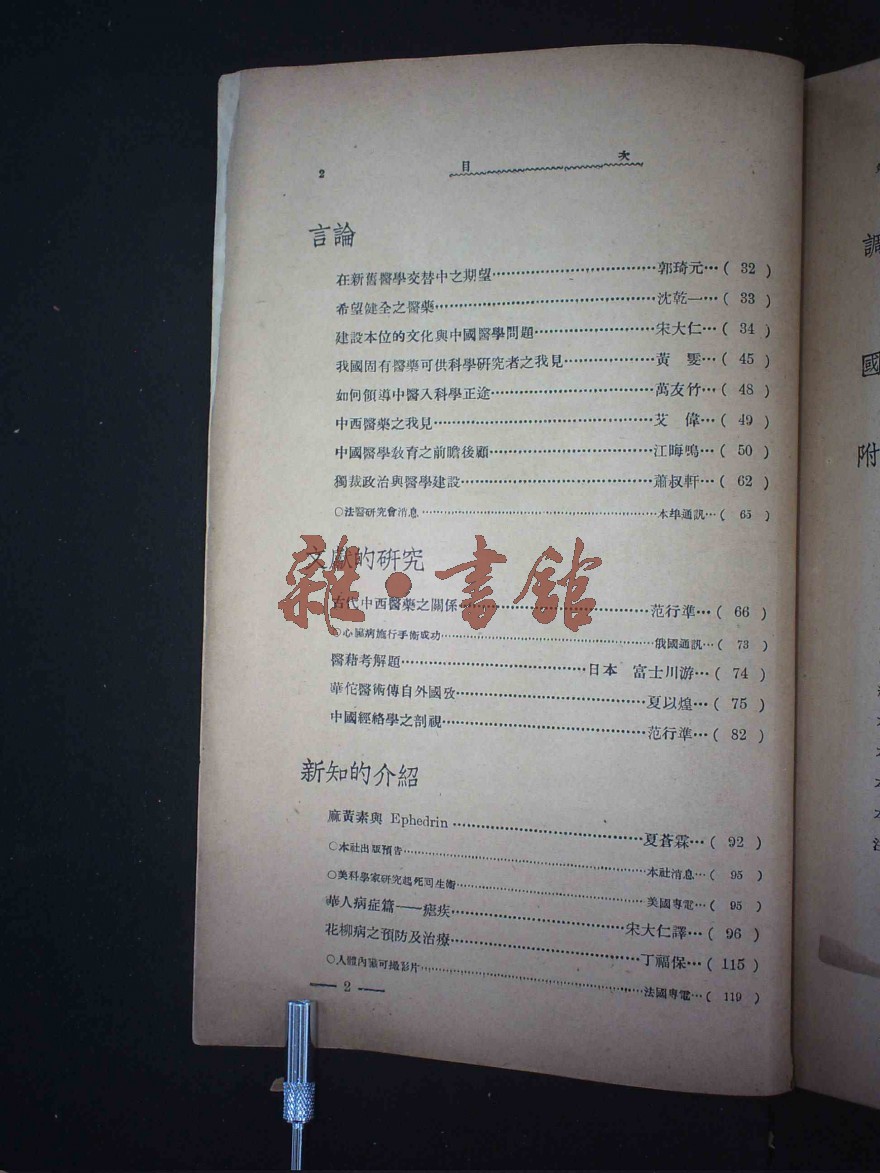 2 目 次
言論
在新舊醫學交替中之期望……郭琦元…( 32 )
希望健全之醫藥……沈乾一…( 33 )
建設本位的文化與中國醫學問題……宋大仁…( 34 )
我國固有醫藥可供科學研究者之我見……黃 雯…( 45 )
如何領導中醫入科學正途……萬友竹…( 48 )
中西醫藥之我見……艾 偉…( 49 )
中國醫學教育之前瞻後顧……江晦鳴…( 50 )
獨裁政治與醫學建設……蕭叔軒…( 62 )
○法醫研究會消息……本埠通訊…( 65 )
文獻的研究
古代中西醫藥之關係……范行準…( 66 )
○心臟病施行手術成功……俄國通訊…( 73 )
醫藉考解題……日本 富士川游…( 74 )
華佗醫術傳自外國攷……夏以煌…( 75 )
中國經絡學之剖視……范行準…( 82 )
新知的介紹
麻黃素與 Ephedrin……夏蒼霖…( 92 )
○本社出版預告……本社消息…( 95 )
○美科學家研究起死回生術……美國專電…( 95 )
華人病症篇——瘧疾……宋大仁譯…( 96 )
花柳病之預防及治療……丁福保…( 115 )
○人體內臟可攝影片……法國專電…( 119 )
— 2 —
雜·書館
調
國
附